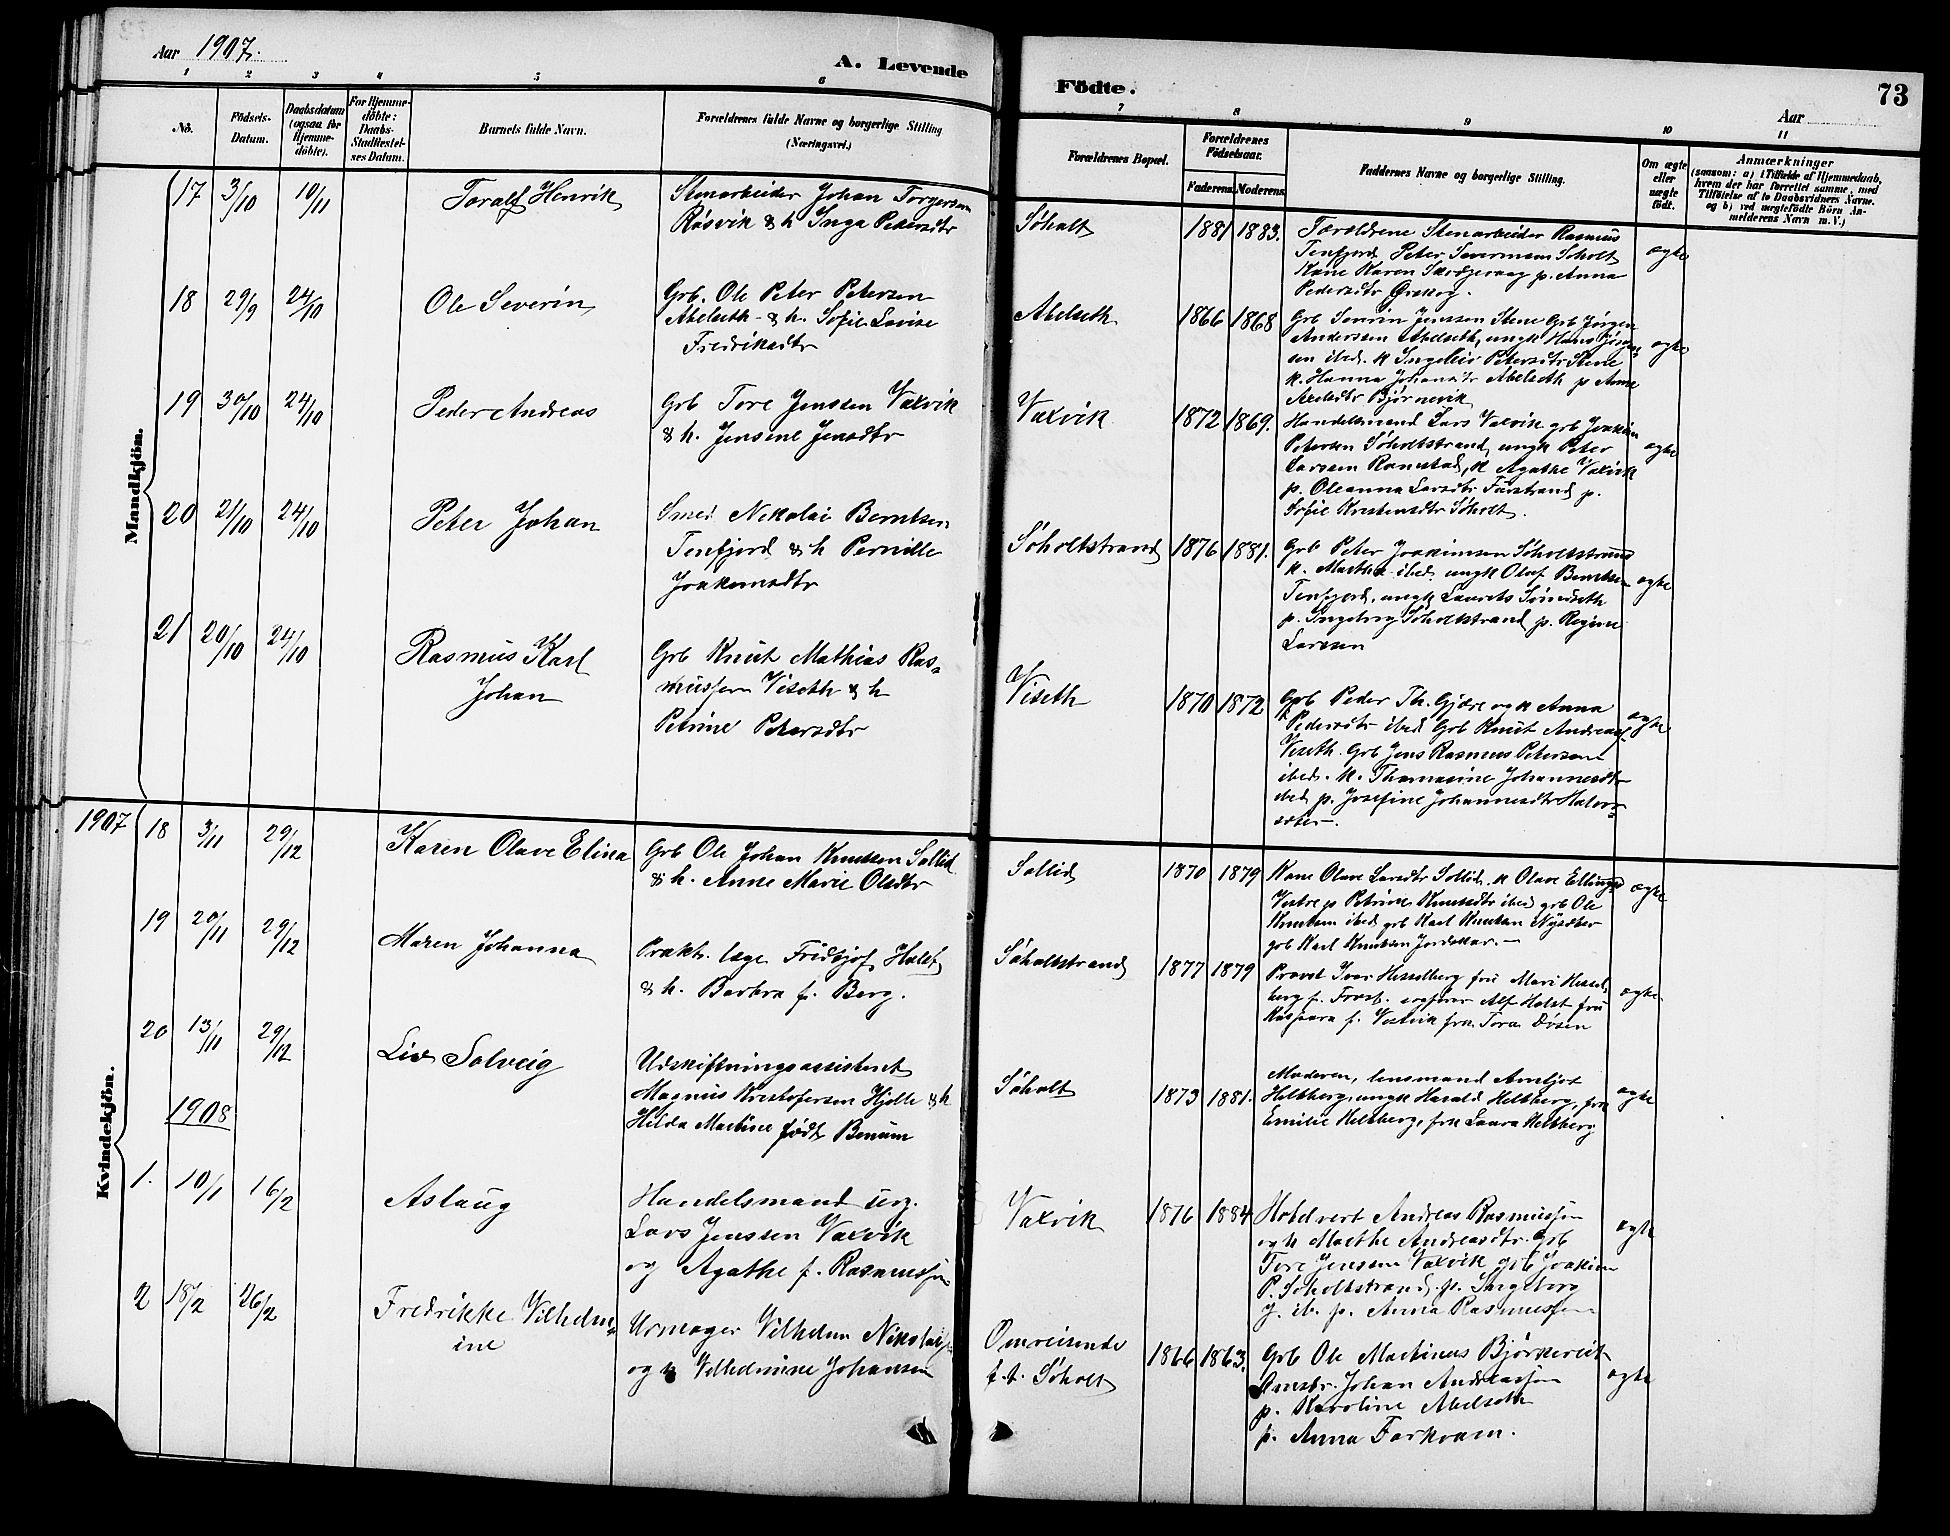 Aar 1907.
A. Levende
Födte.
73
Aar
1 2 3 4 5 6 7 8 9 10 11
No.
Födsels-
Datum.
Daabsdatum
(ogsaa for
Hjemme-
döbte).
For Hjemme-
döbte:
Daabs-
Stadfæstel-
ses Datum.
Barnets fulde Navn.
Forældrenes fulde Navne og borgerlige Stilling
(Næringsvei.)
Forældrenes Bopæl.
Forældrenes
Födselsaar.
Faderens. Moderens.
Faddernes Navne og borgerlige Stilling.
Om ægte
eller
uægte
födt.
Anmærkninger
(saasom: a) i Tilfælde af Hjemmedaab,
hvem der har forrettet samme, med
Tilföielse af to Daabsvidners Navne.
og b) ved uægtefödte Börn An-
melderens Navn m. V.)
Mandkjön.
17 3/10 10/11 Toralf Henrik
Stenarbeider Johan Torgersen
Røsvik & h Inga Pedersdtr
Søholt 1881 1883.
Forældrene Stenarbeider Rasmus
Tenfjord Peter Severinsen Søholt
Kone Karen p. Anna
Pedersdtr Ørskog.
ægte
18 29/9 24/10 Ole Severin
Grb. Ole Peter Petersen
Abelseth & h. Sofie Lovise
Fredriksdtr
Abelseth 1866 1868
Grb Severin Jenssen Stene Grb Jørgen
Anderssen Abelseth, ungk Hans
sen ibed. k Ingeleiv Petersdtr Stene
k. Hanna Johansdtr Abelseth p Anne
Axelsdtr Bjørnevik
ægte
19 30/10 24/10 Peder Andreas
Grb Tore Jenssen Vaxvik
& h. Jensine Jensdtr
Vaxvik 1872 1869.
Handelsmand Lars Vaxvik grb Joakim
Petersen Søholtstrand, ungk Peter
Larssen Ramstad, k Agathe Vaxvik
p. Oleanna Larsdtr Farstrand p.
Sofie Kristensdtr Søholt.
ægte
20 21/10 24/10 Peter Johan
Smed Nikolai Berntsen
Tenfjord & h Pernille
Joakimsdtr
Søholtstrand 1876 1881.
Grb Peter Joakimsen Søholtstrand
k. Marthe ibed. ungk Olaf Berntsen
Tenfjord, ungk Laurits
p. Ingeborg Søholtstrand p. Regine
Larssen
ægte
21 20/10 24/10 Rasmus Karl
Johan
Grb Knut Mathias Ras-
mussen Viseth & h
Petrine Petersdtr
Viseth 1870 1872
Grb Peder Th. Gjære og k Anna
Pedersdtr ibed Grb Knut Andreas
Viseth. Grb Jens Rasmus Petersen
ibed. k. Thomasine Johannesdtr
ibed p. Josefine Johannesdtr Halvor-
sæter.
ægte
Kvindekjön.
1907 18 3/11 29/12 Karen Olave Elina
Grb Ole Johan Knutsen Sollid
& h. Anne Marie Olsdtr
Sollid 1870 1879
Kone Olave Larsdtr Sollid, k Olave Ellingsd
Vestre p Petrine Knutsdtr ibed grb Ole
Knutsen ibed grb Karl Knutsen Nysæter
grb Karl Knutsen
ægte
19 20/11 29/12 Maren Johanna
Prakt. læge Fridtjof Holst
& h. Barbra f. Berg.
Søholtstrand 1877 1879
Provst Ivar Hesselberg fru Mari Hessel-
berg f. sogfører Alf Holst fru
Kaspara f. Vestvik frk. Tora Døsen
ægte
20 13/11 29/12 Liv Solveig
Udskiftningsassistent
Magnus Kristofersen Hjelle & h
Hilda Martine født Benum
Søholt 1873 1881.
Moderen, lensmand Arnljot
Heltberg, ungk Harald Heltberg, frk
Emilie Heltberg, frk Laura Heltberg
ægte
1908
1. 10/1 16/2 Aslaug
Handelsmand
Lars Jenssen Vaxvik
og Agathe f. Rasmussen
Vaxvik 1876 1884
Hotelvert Andreas Rasmussen
og k Marthe Andreasdtr. Grb
Tore Jenssen Vaxvik grb Joakim
P. Søholtstrand. p. Ingeborg
J. ib. p. Anna Rasmussen
ægte
2 18/2 26/2 Fredrikke Vilhelm-
ine
Urmager Vilhelm Nikolai
og h Vilhelmine Johansen
Omreisende
f.t. Søholt
1866 1863.
Grb Ole Martinus Bjørkevik
Johan Andreassen
p. Karoline Abelseth
p. Anna Farkvam.
ægte